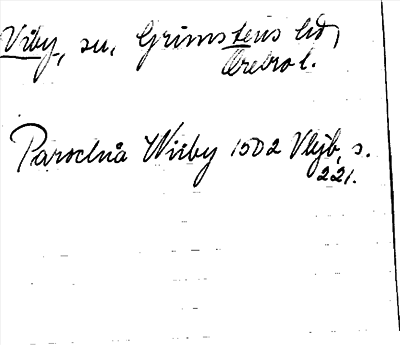 Viby, sn, Grimstens hd,
Örebro l.
Parochiå Wieby 1502 Vljb, s.
221.